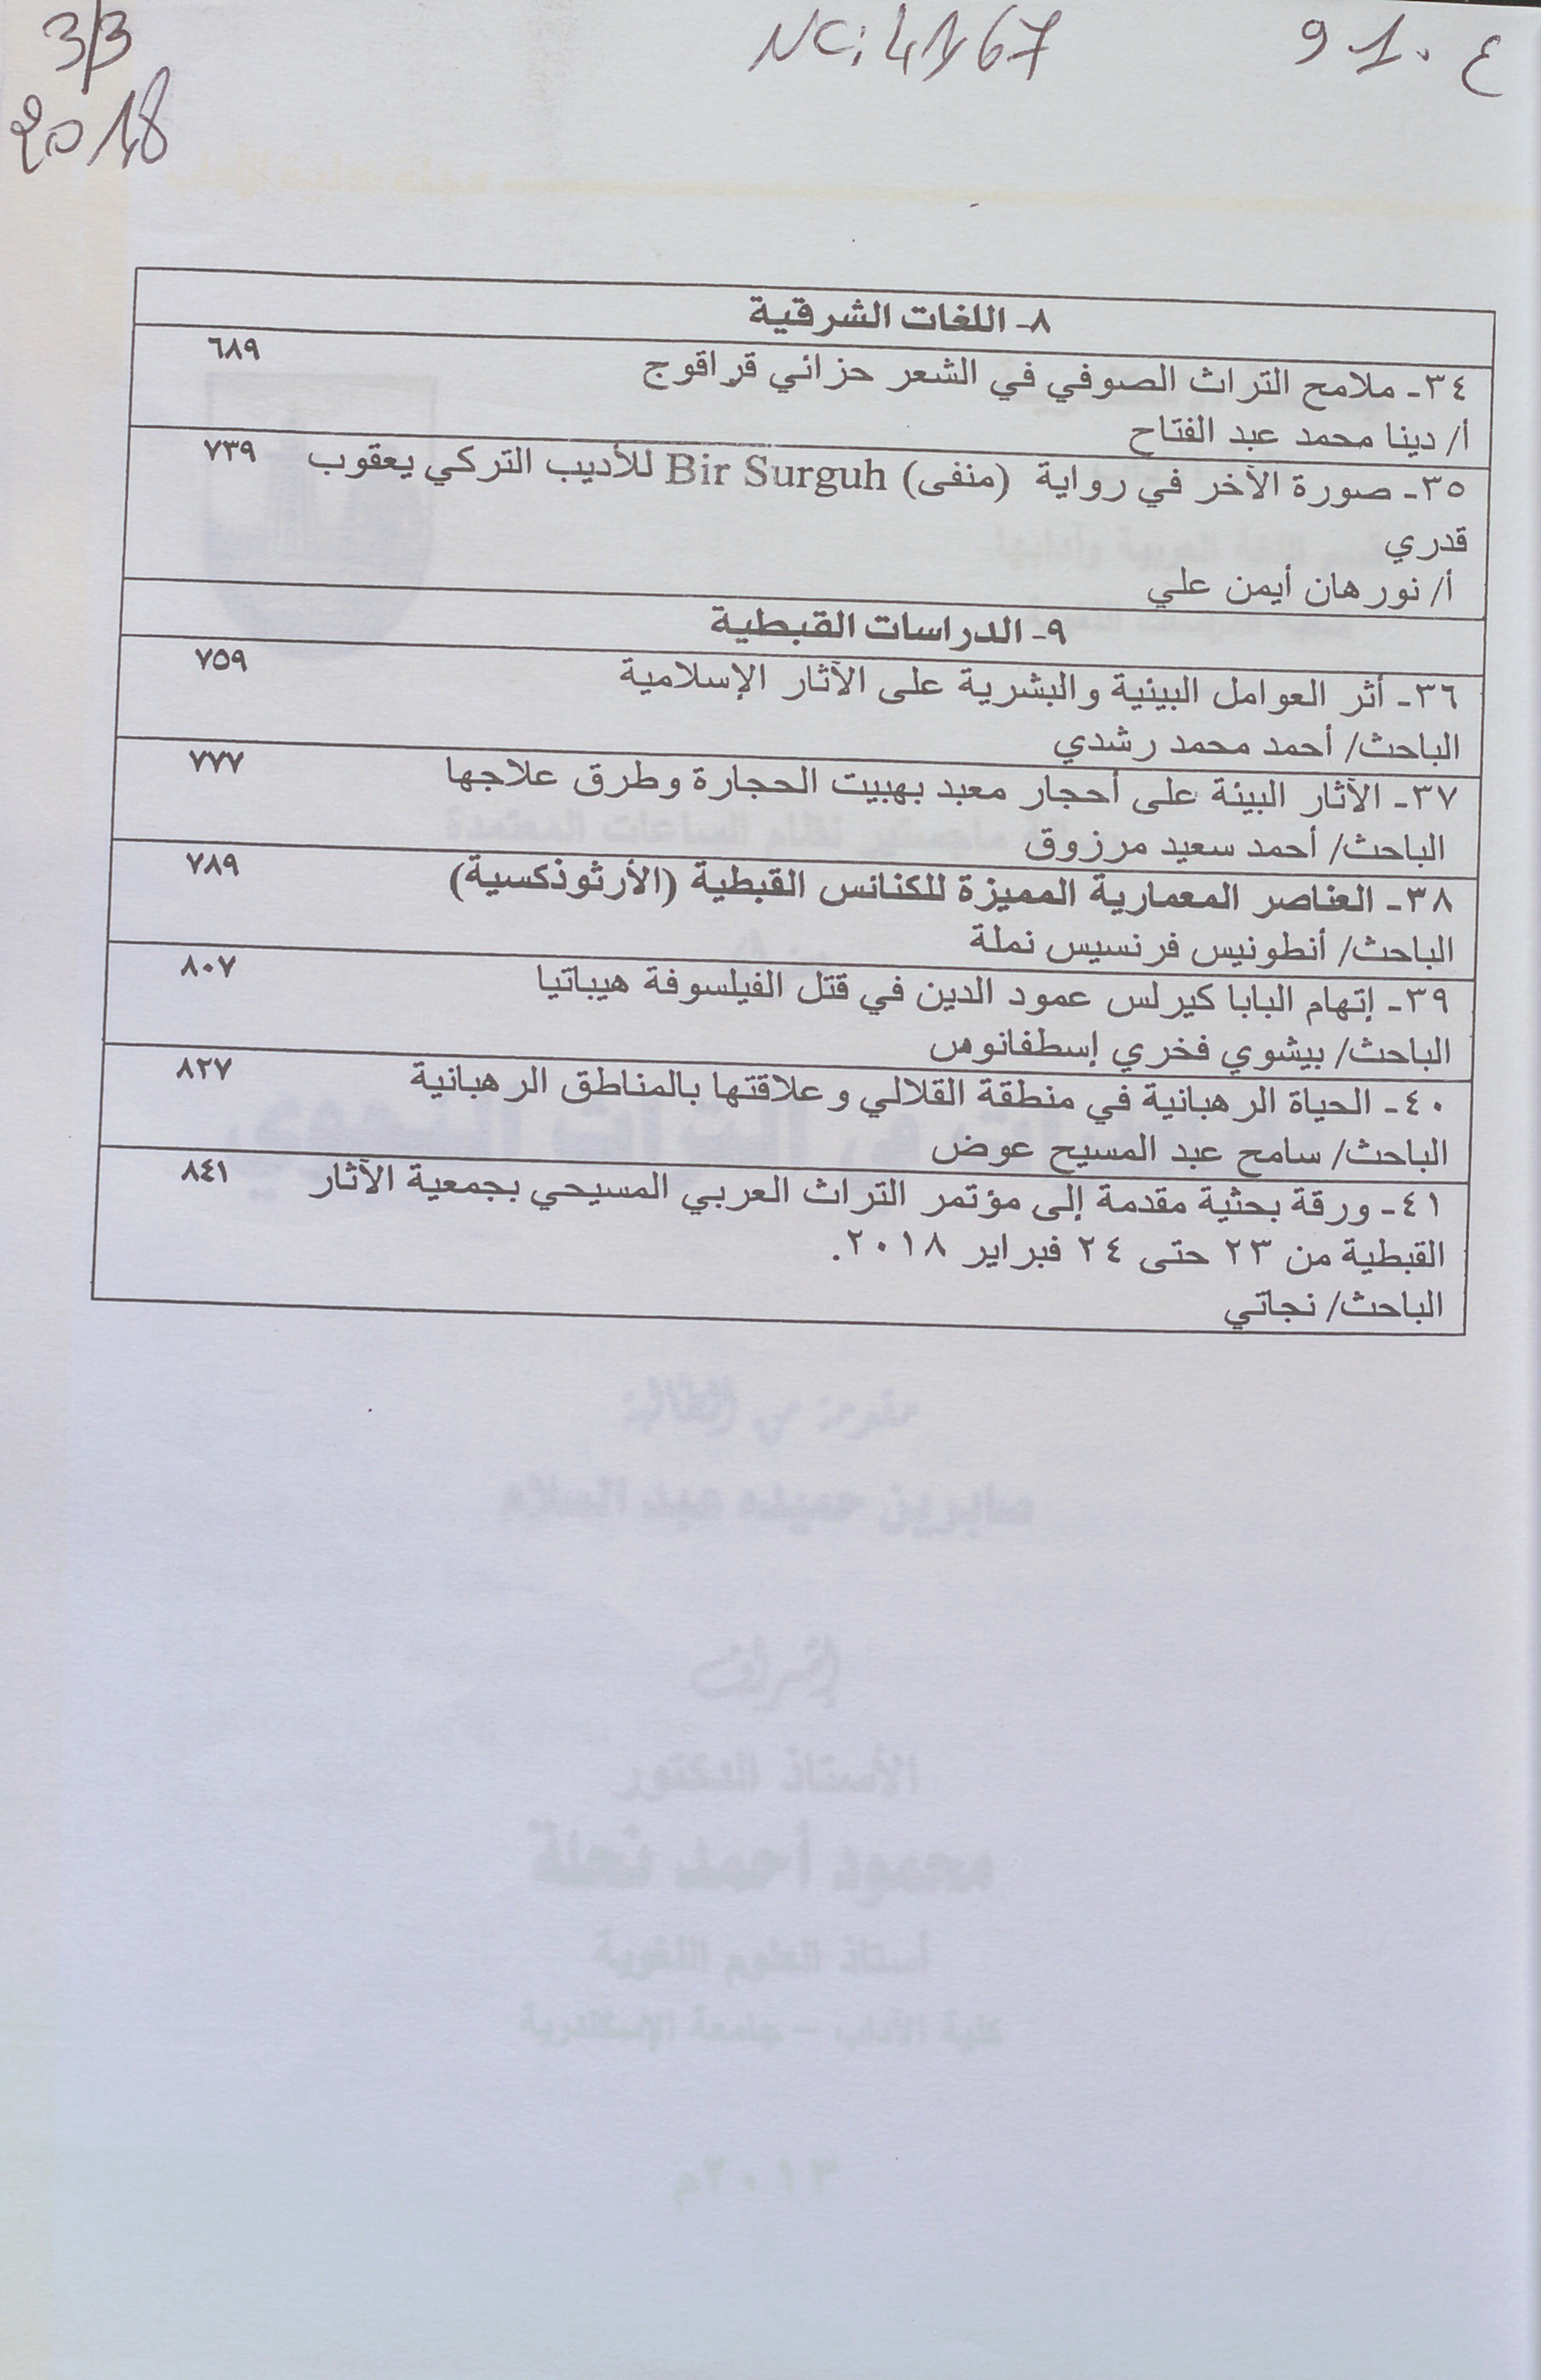 3/3
2018
NC: 41167
910. ع
٨- اللغات الشرقية
٣٤- ملامح التراث الصوفي في الشعر حزائي قراقوج ٦٨٩
أ/ دينا محمد عبد الفتاح
٣٥- صورة الآخر في رواية (منفى) Bir Surguh للأديب التركي يعقوب ٧٣٩
قدري
أ/ نورهان أيمن علي
٩- الدراسات القبطية
٣٦- أثر العوامل البيئية والبشرية على الآثار الإسلامية ٧٥٩
الباحث/ أحمد محمد رشدي
٣٧- الآثار البيئة على أحجار معبد بهبيت الحجارة وطرق علاجها ٧٧٧
الباحث/ أحمد سعيد مرزوق
٣٨- العناصر المعمارية المميزة للكنائس القبطية (الأرثوذكسية) ٧٨٩
الباحث/ أنطونيس فرنسيس نملة
٣٩- إتهام البابا كيرلس عمود الدين في قتل الفيلسوفة هيباتيا ٨٠٧
الباحث/ بيشوي فخري إسطفانوس
٤٠- الحياة الرهبانية في منطقة القلالي وعلاقتها بالمناطق الرهبانية ٨٢٧
الباحث/ سامح عبد المسيح عوض
٤١- ورقة بحثية مقدمة إلى مؤتمر التراث العربي المسيحي بجمعية الآثار ٨٤١
القبطية من ٢٣ حتى ٢٤ فبراير ٢٠١٨.
الباحث/ نجاتي